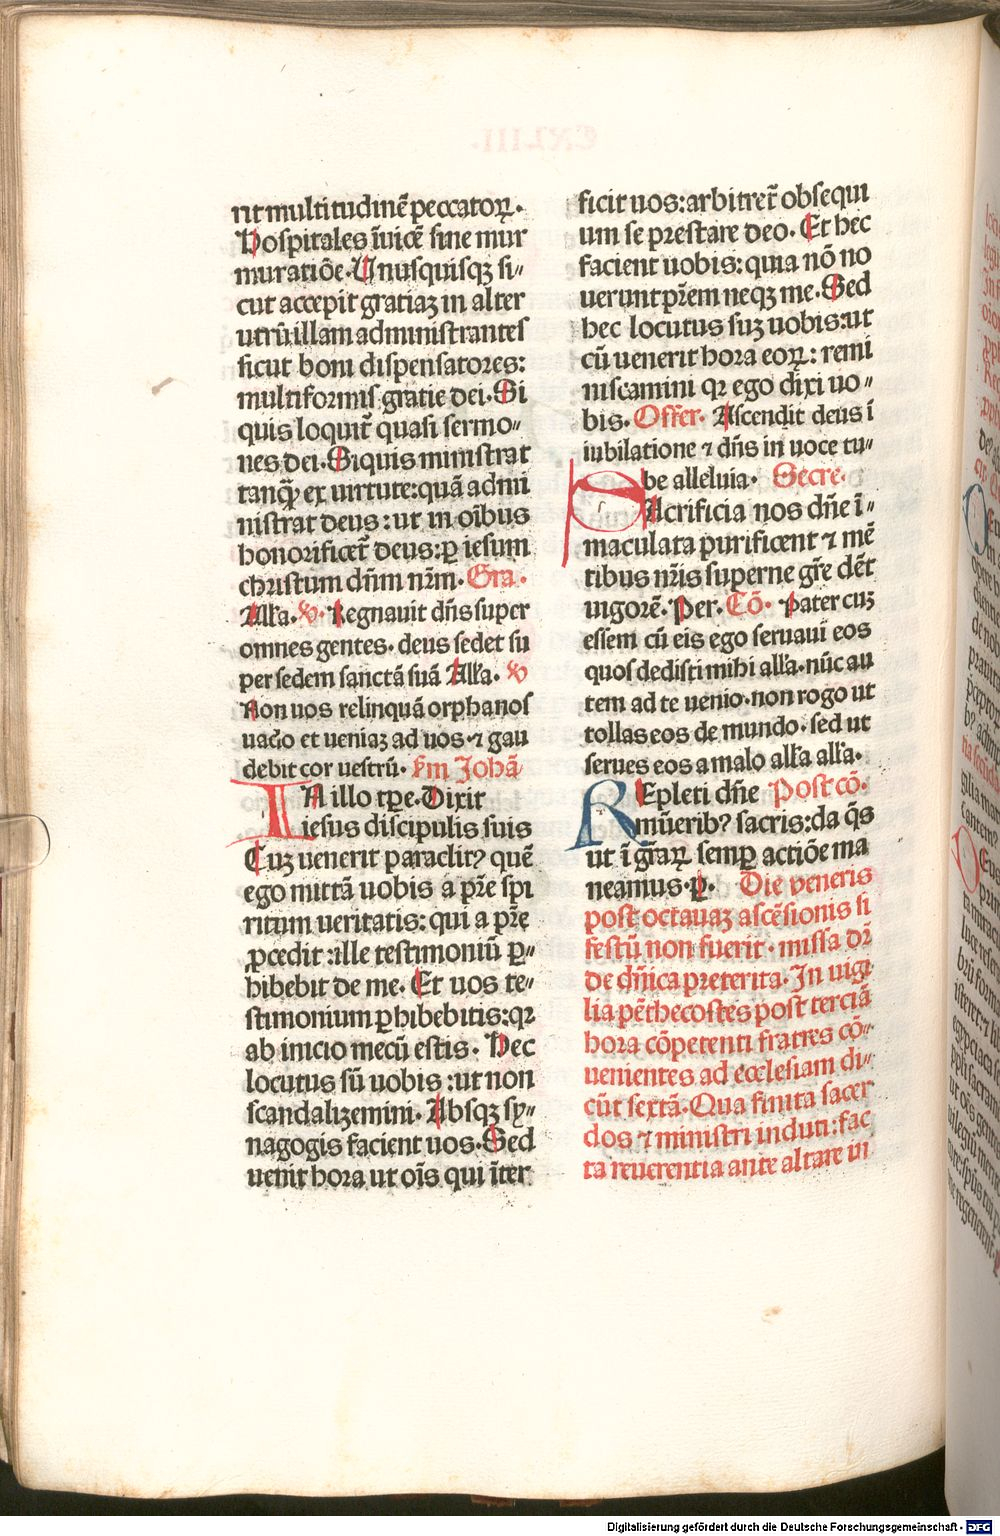 rit multitudinē peccatoꝝ.
Hospitales īuicē sine mur
muratiōe. Unusquisqꝫ si„
cut accepit gratiaꝫ in alter
utrū illam administrantes
sicut boni dispensatores:
multiformis gratie dei. Si
quis loquit᷑ quasi sermo„
nes dei. Siquis ministrat
tanqꝫ̄ ex uirtute: quā admi
nistrat deus: ut in oībus
honorificet᷑ deus: ꝑ iesum
christum dn̄m nr̄m. Gra.
Allꝛa. ℣. Regnauit dn̄s super
omnes gentes. deus sedet su
per sedem sanctā suā All̄a. ℣
Non uos relinquā orphanos
uado et ueniaꝫ ad uos ⁊ gau
debit cor uestrū. s̄m Johā
IN illo tꝑe. Dixit
iesus discipulis suis
Cuꝫ uenerit paraclitꝰ quē
ego mittā uobis a pr̄e spi
ritum ueritatis: qui a pr̄e
ꝓcedit: ille testimoniū ꝑ„
hibebit de me. Et uos te„
stimonium ꝑhibebitis: qꝛ
ab inicio mecū estis. Hec
locutus sū uobis: ut non
scandalizemini. Absqꝫ sy„
nagogis facient uos. Sed
uenit hora ut oīs qui īter
ficit uos: arbitret᷑ obsequi
um se prestare deo. Et hec
facient uobis: quia nō no
uerunt pr̄em neqꝫ me. Sed
hec locutus suꝫ uobis: ut
cū uenerit hora eoꝝ: remi
niscamini qꝛ ego dixi uo„
bis. Offer. Ascendit deus ī
iubilatione ⁊ dn̄s in uoce tu„
be alleluia. Secre.
SAcrificia nos dn̄e ī„
maculata purificent ⁊ mē
tibus nr̄is superne gr̄e dēt
uigorē. Per. Cō. Pater cuꝫ
essem cū eis ego seruaui eos
quos dedisti mihi all̄a. nūc au
tem ad te uenio. non rogo ut
tollas eos de mundo. sed ut
serues eos a malo all̄a all̄a.
REpleti dn̄e Post cō.
mūeribꝰ sacris: da q̄s
ut ī gr̄aꝝ semꝑ actiōe ma
neamus. ꝑ. Die veneris
post octauaꝫ ascēsionis si
festū non fuerit. missa dr̄
de dn̄ica preterita. In uigi
lia pēthecostes post terciā
hora cōpetenti fratres cō„
uenientes ad ecclesiam di„
cūt sextā. Qua finita sacer
dos ⁊ ministri induti: fac
ta reuerentia ante altare ui
Digitalisierung gefördert durch die Deutsche Forschungsgemeinschaft - DFG